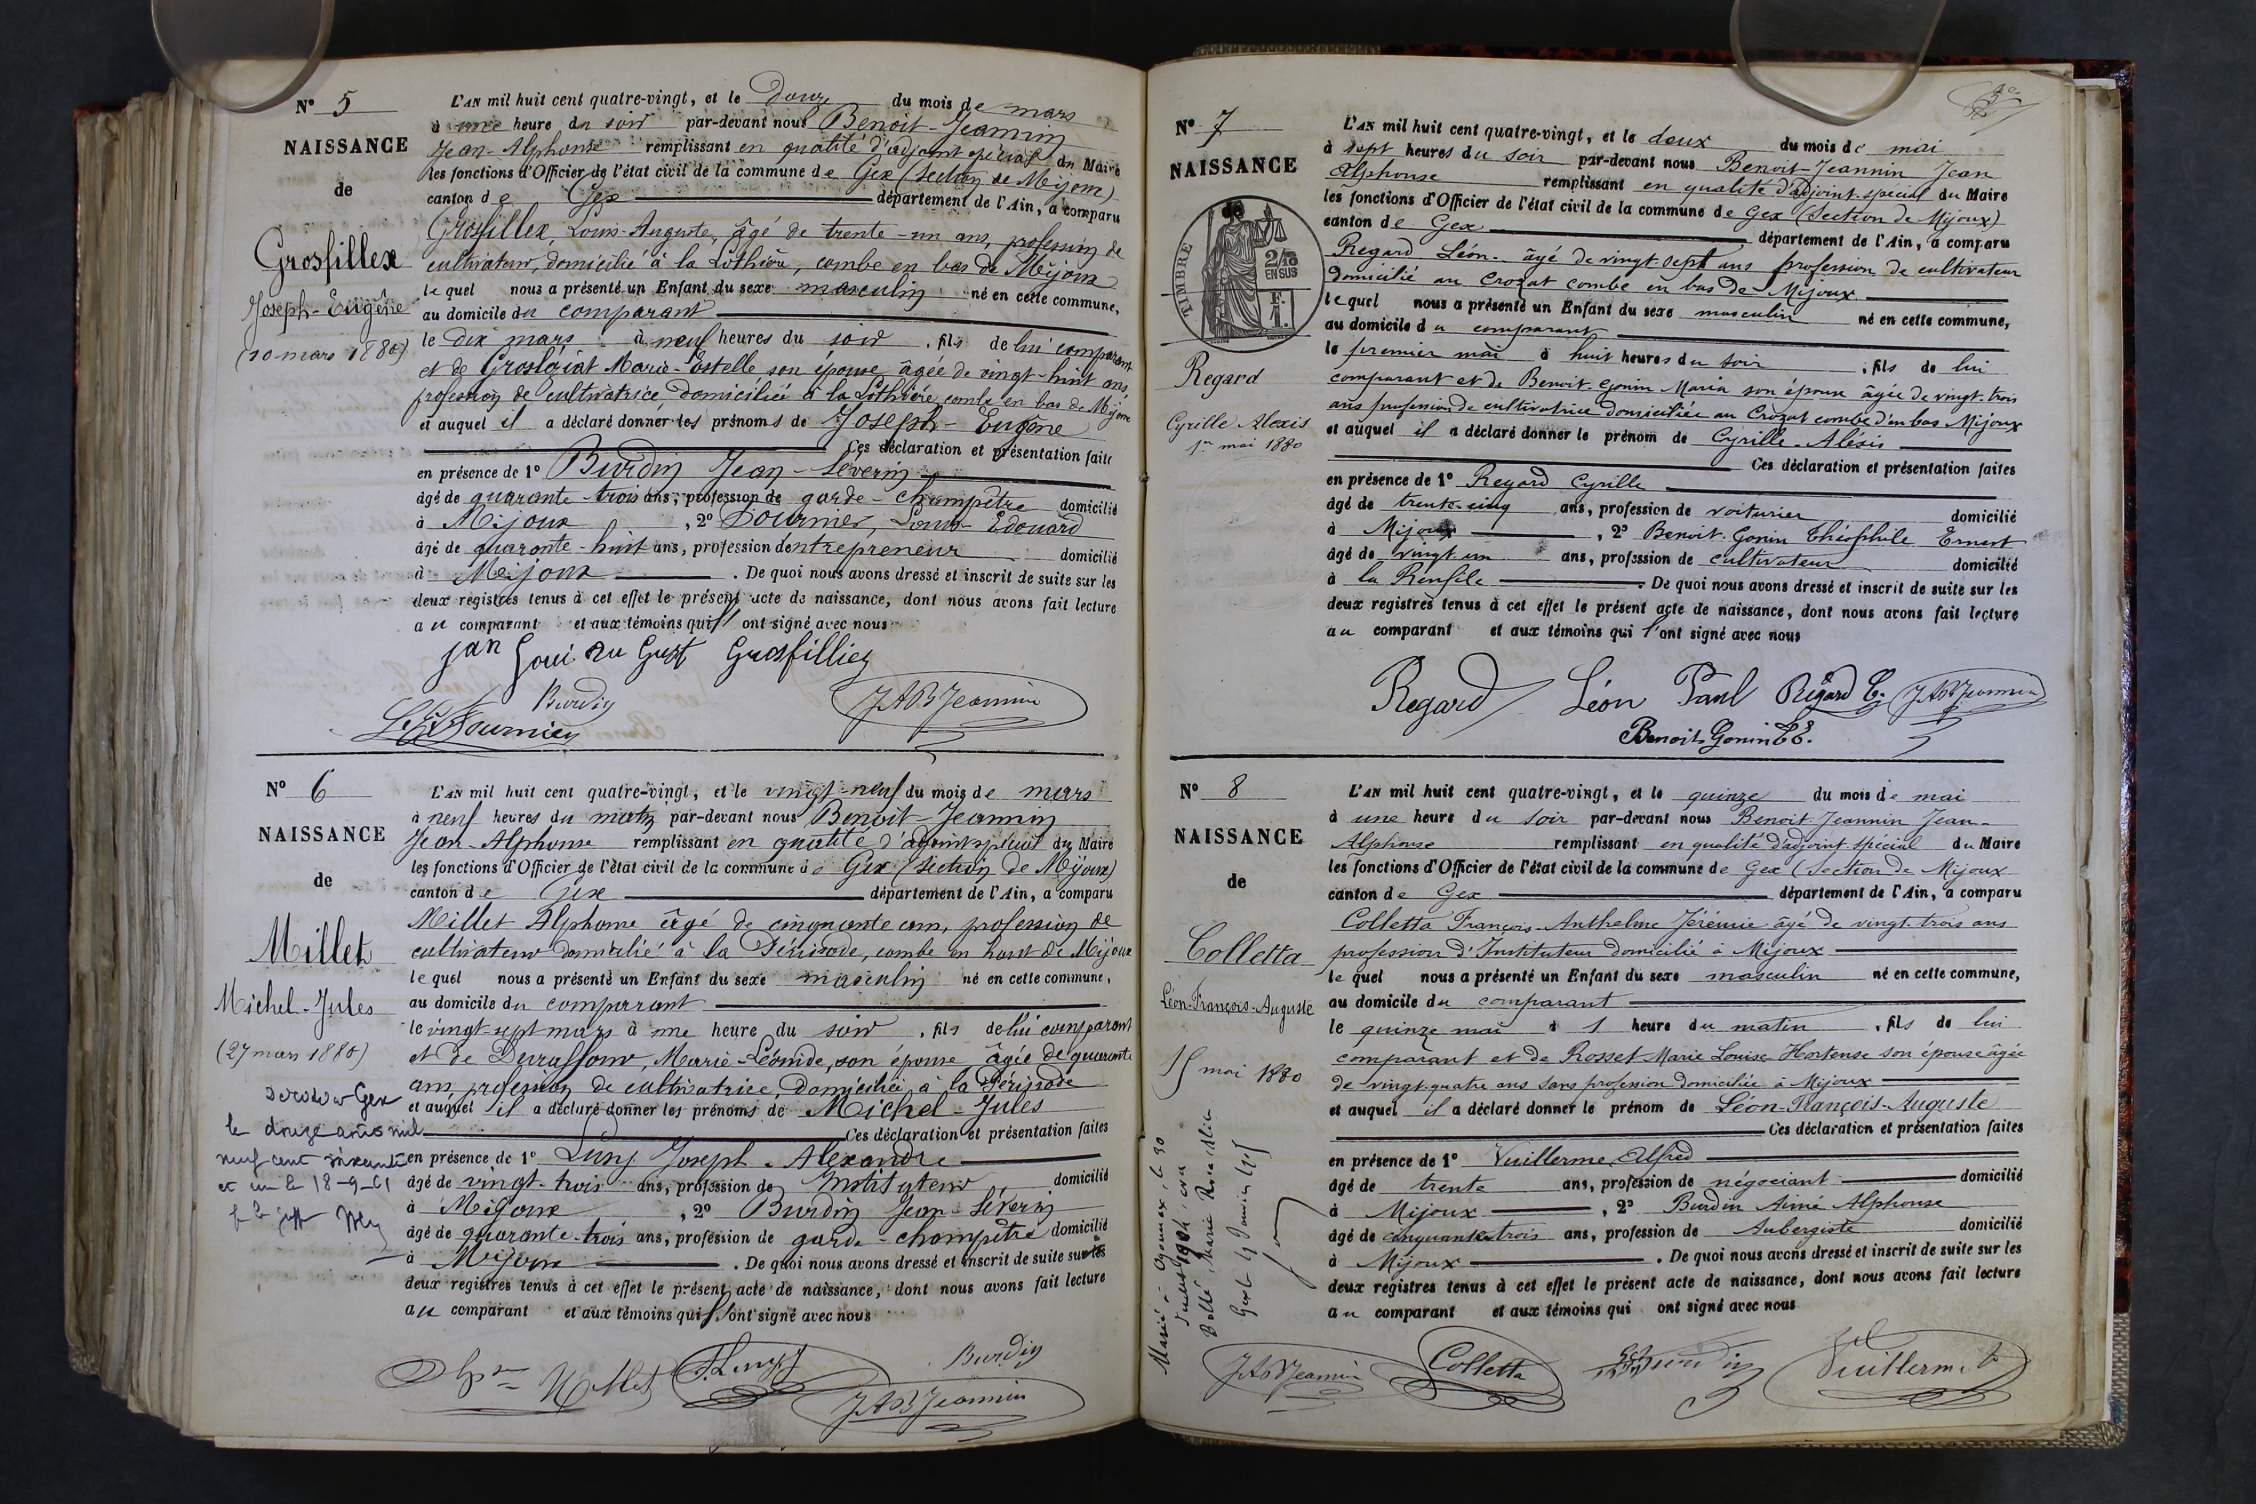 N° 5
NAISSANCE
de
Grosfillex
Joseph-Eugène
(10 mars 1880)
L'AN mil huit cent quatre-vingt, et le douze du mois de mars
à une heure du soir par-devant nous Benoit-Jeannin
Jean-Alphonse remplissant en qualité d'adjoint spécial du Maire
les fonctions d'Officier de l'état civil de la commune de Gex (section de Mijoux)
canton de Gex département de l'Ain, a comparu
Grosfillex, Louis-Auguste, âgé de trente-un ans, profession de
cultivateur, domicilié à la Lothière, combe en bas de Mijoux
lequel nous a présenté un Enfant du sexe masculin né en cette commune,
au domicile du comparant
le dix mars à neuf heures du soir, fils de lui comparant
et de Grosgurat Marie-Estelle son épouse âgée de vingt-huit ans,
profession de cultivatrice domiciliée à la Lothière combe en bas de Mijoux
et auquel il a déclaré donner les prénoms de Joseph-Eugène
Ces déclaration et présentation faites
en présence de 1° Burdin Jean-Séverin
âgé de quarante-trois ans, profession de garde-champêtre domicilié
à Mijoux, 2° Fournier, Louis-Edouard
âgé de quarante-huit ans, profession d'entrepreneur domicilié
à Mijoux. De quoi nous avons dressé et inscrit de suite sur les
deux registres tenus à cet effet le présent acte de naissance, dont nous avons fait lecture
au comparant et aux témoins qui l'ont signé avec nous
Grosfilliex
Burdin
JABJeannin
L. E. Fournier
N° 6
NAISSANCE
de
Millet
Michel-Jules
(27 mars 1880)
Gex
le douze août mil
neuf cent soixante
et un le 18-9-61
L'AN mil huit cent quatre-vingt, et le vingt-neuf du mois de mars
à neuf heures du matin par-devant nous Benoit-Jeannin
Jean-Alphonse remplissant en qualité d'adjoint spécial du Maire
les fonctions d'Officier de l'état civil de la commune de Gex (section de Mijoux)
canton de Gex département de l'Ain, a comparu
Millet Alphonse âgé de cinquante ans, profession de
cultivateur domicilié à la Périsode, combe en haut de Mijoux
lequel nous a présenté un Enfant du sexe masculin né en cette commune,
au domicile du comparant
le vingt-sept mars à une heure du soir, fils de lui comparant
et de Marie-Léonide, son épouse âgée de quarante
ans, profession de cultivatrice, domiciliée à la Périsode
et auquel il a déclaré donner les prénoms de Michel-Jules
Ces déclaration et présentation faites
en présence de 1° Luny Joseph-Alexandre
âgé de vingt-trois ans, profession de Instituteur domicilié
à Mijoux, 2° Burdin Jean-Séverin
âgé de quarante-trois ans, profession de garde-champêtre domicilié
à Mijoux. De quoi nous avons dressé et inscrit de suite sur les
deux registres tenus à cet effet le présent acte de naissance, dont nous avons fait lecture
au comparant et aux témoins qui l'ont signé avec nous
Millet
Burdin
JABJeannin
N° 7
NAISSANCE
TIMBRE
2/10
EN SUS
F.
1.
Regard
Cyrille Alexis
1er mai 1880
L'AN mil huit cent quatre-vingt, et le deux du mois de mai
à sept heures du soir par-devant nous Benoit-Jeannin Jean
Alphonse remplissant en qualité d'adjoint-spécial du Maire
les fonctions d'Officier de l'état civil de la commune de Gex (Section de Mijoux)
canton de Gex département de l'Ain, a comparu
Regard Léon. âgé de vingt sept ans profession de cultivateur
domicilié au Crozat combe en bas de Mijoux
lequel nous a présenté un Enfant du sexe masculin né en cette commune,
au domicile du comparant
le premier mai à huit heures du soir, fils de lui
comparant et de Benoit-Gonin Maria son épouse âgée de vingt-trois
ans profession de cultivatrice domiciliée au Crozat combe d'en bas Mijoux
et auquel il a déclaré donner le prénom de Cyrille-Alésis
Ces déclaration et présentation faites
en présence de 1° Regard Cyrille
âgé de trente-cinq ans, profession de voiturier domicilié
à Mijoux, 2° Benoit-Gonin Théophile Ernest
âgé de vingt un ans, profession de cultivateur domicilié
à la Renfile. De quoi nous avons dressé et inscrit de suite sur les
deux registres tenus à cet effet le présent acte de naissance, dont nous avons fait lecture
au comparant et aux témoins qui l'ont signé avec nous
Regard Léon Paul Régard C. JABJeannin
Benoit-Gonin T E.
N° 8
NAISSANCE
de
Colletta
Léon-François-Auguste
15 mai 1880
L'AN mil huit cent quatre-vingt, et le quinze du mois de mai
à une heure du soir par-devant nous Benoit Jeannin Jean-
Alphonse remplissant en qualité d'adjoint spécial du Maire
les fonctions d'Officier de l'état civil de la commune de Gex (Section de Mijoux
canton de Gex département de l'Ain, a comparu
Colletta François-Anthelme Jérémie âgé de vingt-trois ans
profession d'Instituteur domicilié à Mijoux
lequel nous a présenté un Enfant du sexe masculin né en cette commune,
au domicile du comparant
le quinze mai à 1 heure du matin, fils de lui
comparant et de Rosset Marie Louise Hortense son épouse âgée
de vingt-quatre ans sans profession domiciliée à Mijoux
et auquel il a déclaré donner le prénom de Léon-François-Auguste
Ces déclaration et présentation faites
en présence de 1° Vuillerme Alfred
âgé de trente ans, profession de négociant domicilié
à Mijoux, 2° Burdin Aimé Alphonse
âgé de cinquante trois ans, profession de Aubergiste domicilié
à Mijoux. De quoi nous avons dressé et inscrit de suite sur les
deux registres tenus à cet effet le présent acte de naissance, dont nous avons fait lecture
au comparant et aux témoins qui ont signé avec nous
Marié à Oyonnax, le 30
juillet 1904, avec
Marie Rosa
JABJeannin Colletta Burdin Vuillerme